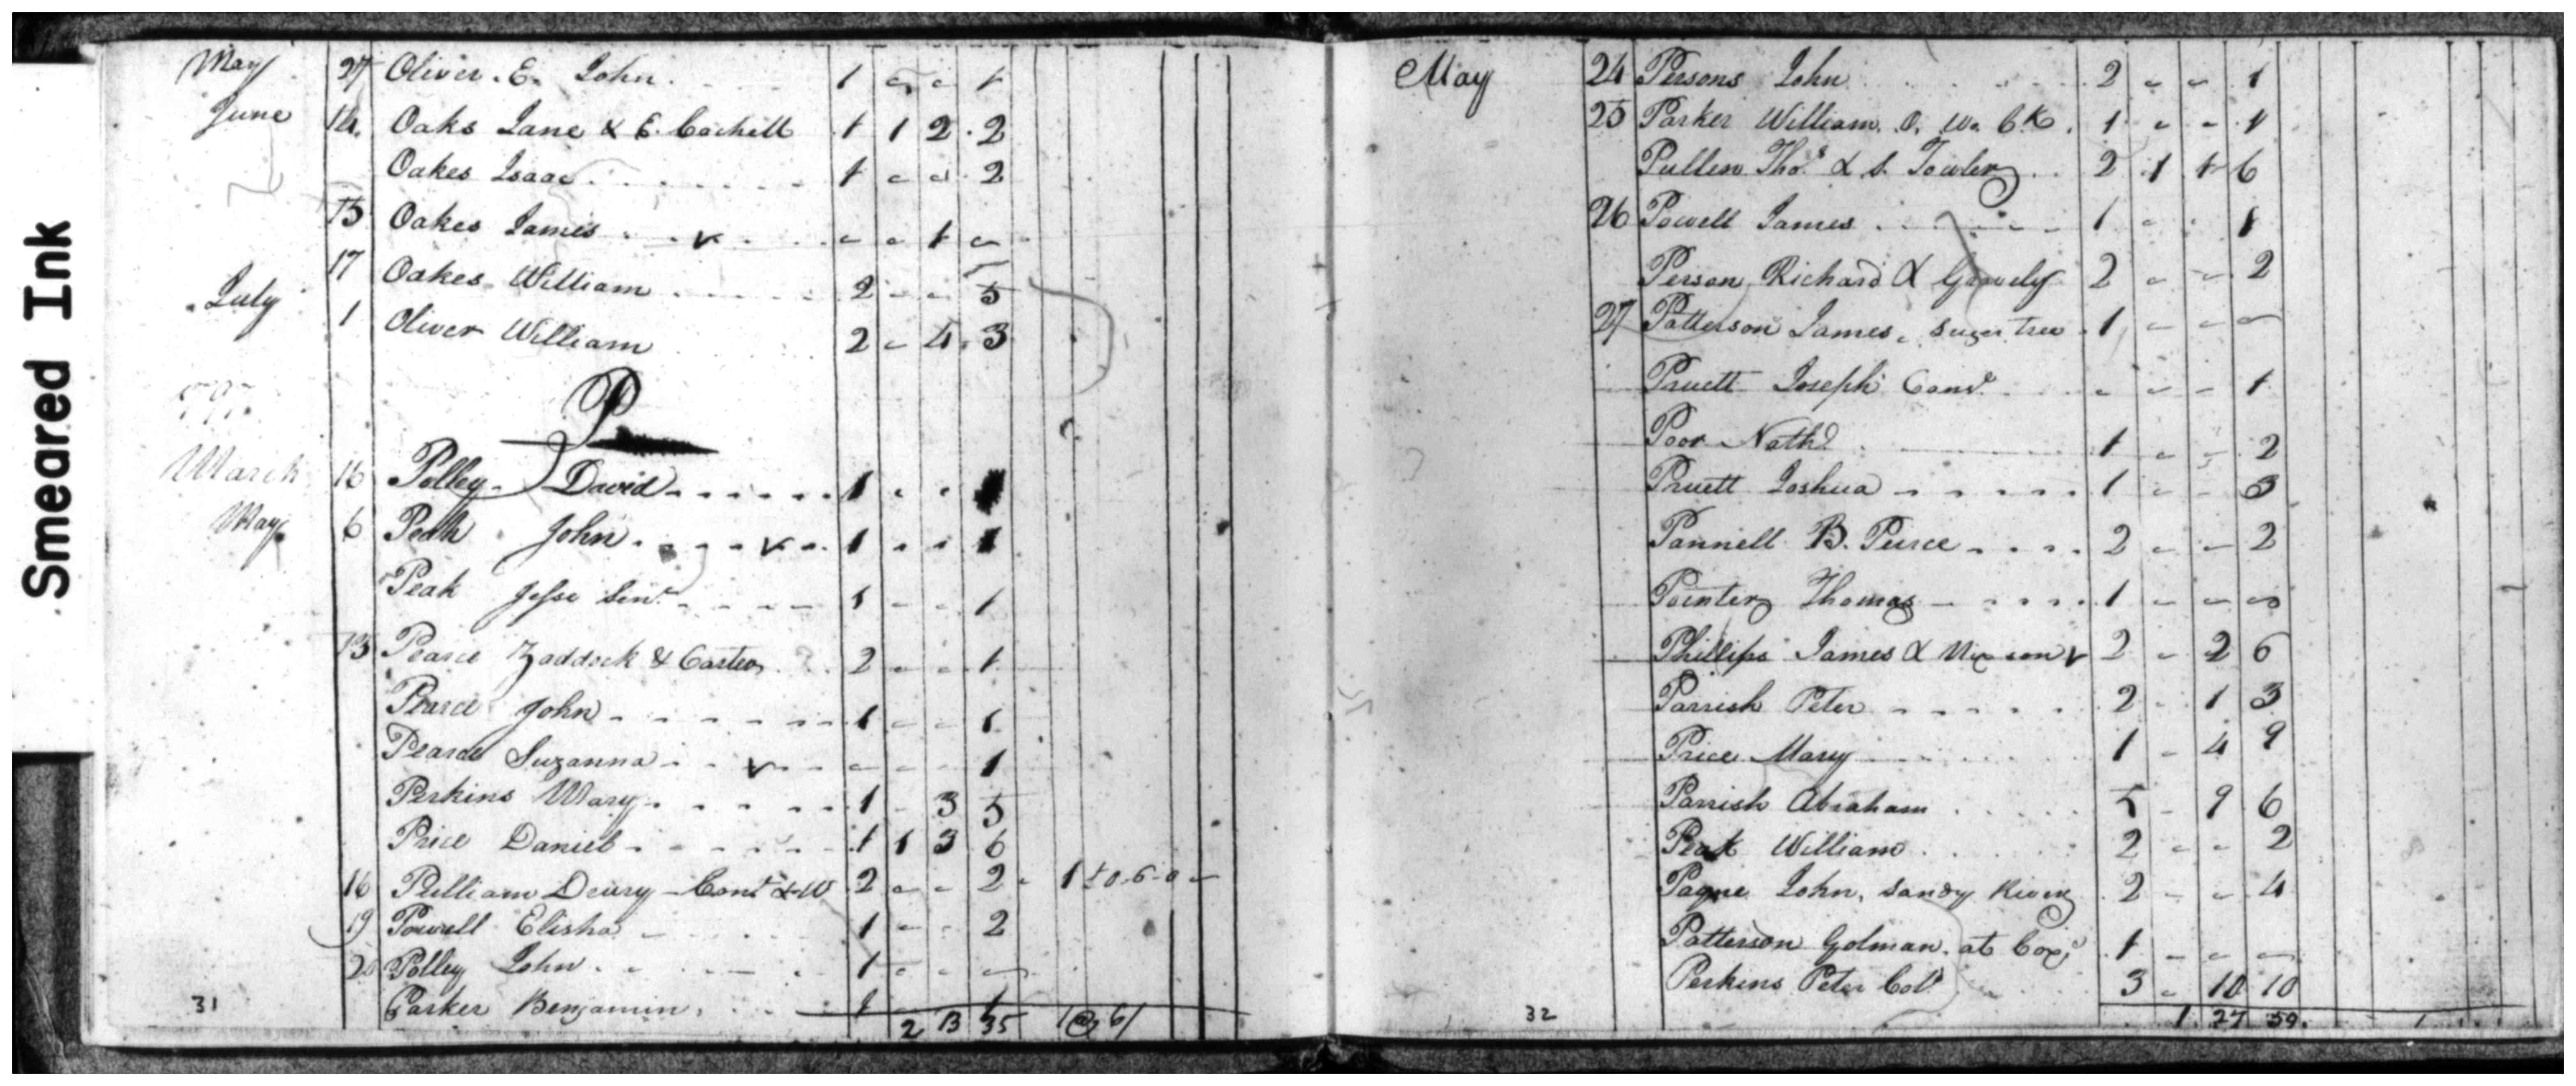 Smeared Ink
May 27 Oliver. E. John. 1 - - 1
June 14. Oaks Jane & E. Cockell 1 1 2 2
Oakes Isaac 1 - - 2
15 Oakes James v - - 1 -
17 Oakes William 2 - - 5
July 1 Oliver William 2 - 4 3
P
March 16 Polley David 1 - -
May 6 Peak John v 1 - - 1
Peak Jesse Senr. 1 - - 1
13 Pearce Zaddock & Carter 2 - - 1
Pearce John 1 - - 1
Pearce Suzanna v - - - 1
Perkins Mary 1 - 3 5
Price Daniel 1 1 3 6
16 Pulliam Drury Const & W 2 - - 2 1 to 0-6-0
19 Powell Elisha 1 - - 2
20 Polley John 1 - - -
Parker Benjamin 1 1
31 2 13 35 1 @ 6/
May 24 Persons John 2 - - 1
25 Parker William. O. Wa. Ck. 1 - - 1
Pullen Thos. & S. Towler 2 1 1 6
26 Powell James 1 - - 1
Person Richard & Gravely 2 - - 2
27 Patterson James, sugar tree 1 - - -
Pruett Joseph Const. - - - 1
Poor Nathl. 1 - - 2
Pruett Joshua 1 - - 3
Pannell B. Peirce 2 - - 2
Pointer Thomas 1 - - -
Phillips James & Nixson v 2 - 2 6
Parrish Peter 2 - 1 3
Price Mary 1 - 4 9
Parrish Abraham 5 - 9 6
Peak William 2 - - 2
Pagne John, Sandy River 2 - - 4
Patterson Golman, at Cox's 1 - - -
Perkins Peter Colo. 3 - 10 10
32 1. 27 59.